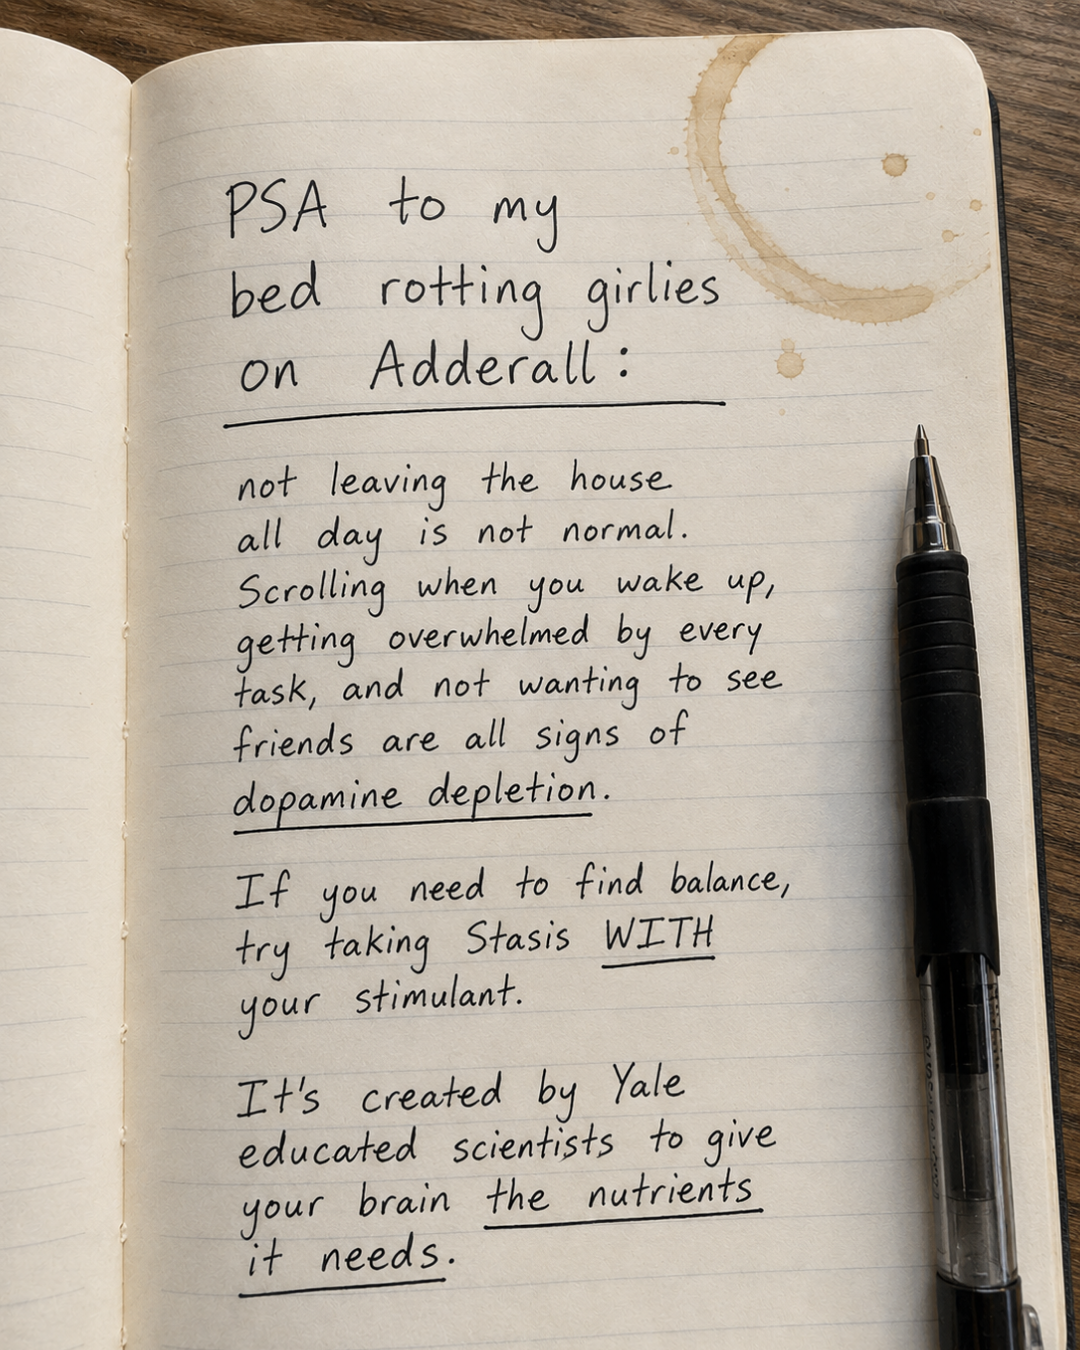 PSA to my
bed rotting girlies
on Adderall:
not leaving the house
all day is not normal.
Scrolling when you wake up,
getting overwhelmed by every
task, and not wanting to see
friends are all signs of
dopamine depletion.
If you need to find balance,
try taking Stasis WITH
your stimulant.
It's created by Yale
educated scientists to give
your brain the nutrients
it needs.